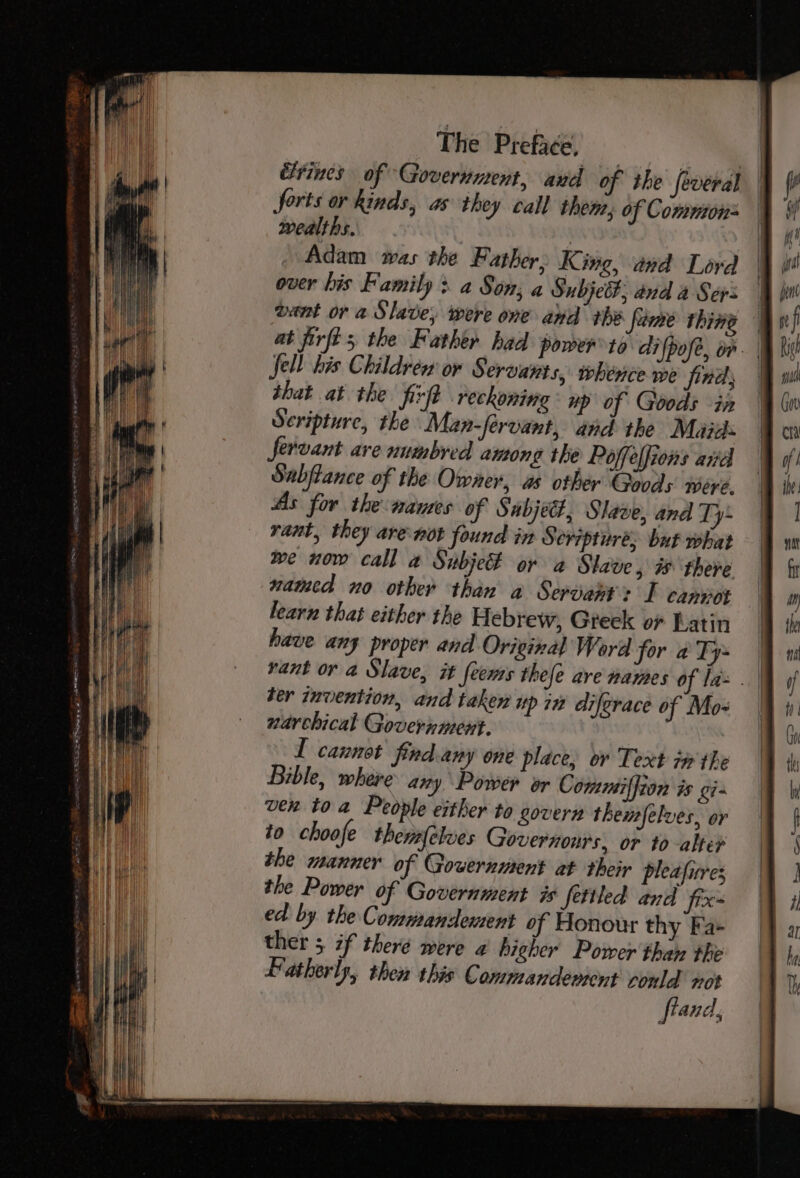 The Preface.
ctrines of Government, and of the ſeveral
ſorts or kinds, as they call them, of Common-
wealths.
Adam was the Father, King, and Lord
over his Family : a Son, a Subject, and a Ser-
vant or a Slave, were one and the ſame thing
at firſt ; the Father had power to diſpoſe, or
ſell his Children or Servants, whence we find,
that at the firſt reckoning up of Goods in
Scripture, the Man-ſervant, and the Maid-
ſervant are numbred among the Poſſeſſions and
Subſtance of the Owner, as other Goods were.
As for the names of Subject, Slave, and Ty-
rant, they are not found in Scripture, but what
we now call a Subject or a Slave, is there
named no other than a Servant : I cannot
learn that either the Hebrew, Greek or Latin
have any proper and Original Word for a Ty-
rant or a Slave, it ſeems theſe are names of la-
ter invention, and taken up in diſgrace of Mo-
narchical Government.
I cannot find any one place, or Text in the
Bible, where any Power or Commiſſion is gi-
ven to a People either to govern themſelves, or
to chooſe themſelves Governours, or to alter
the manner of Government at their pleaſure;
the Power of Government is ſettled and fix-
ed by the Commandement of Honour thy Fa-
ther ; if there were a higher Power than the
Fatherly, then this Commandement could not
ſtand,